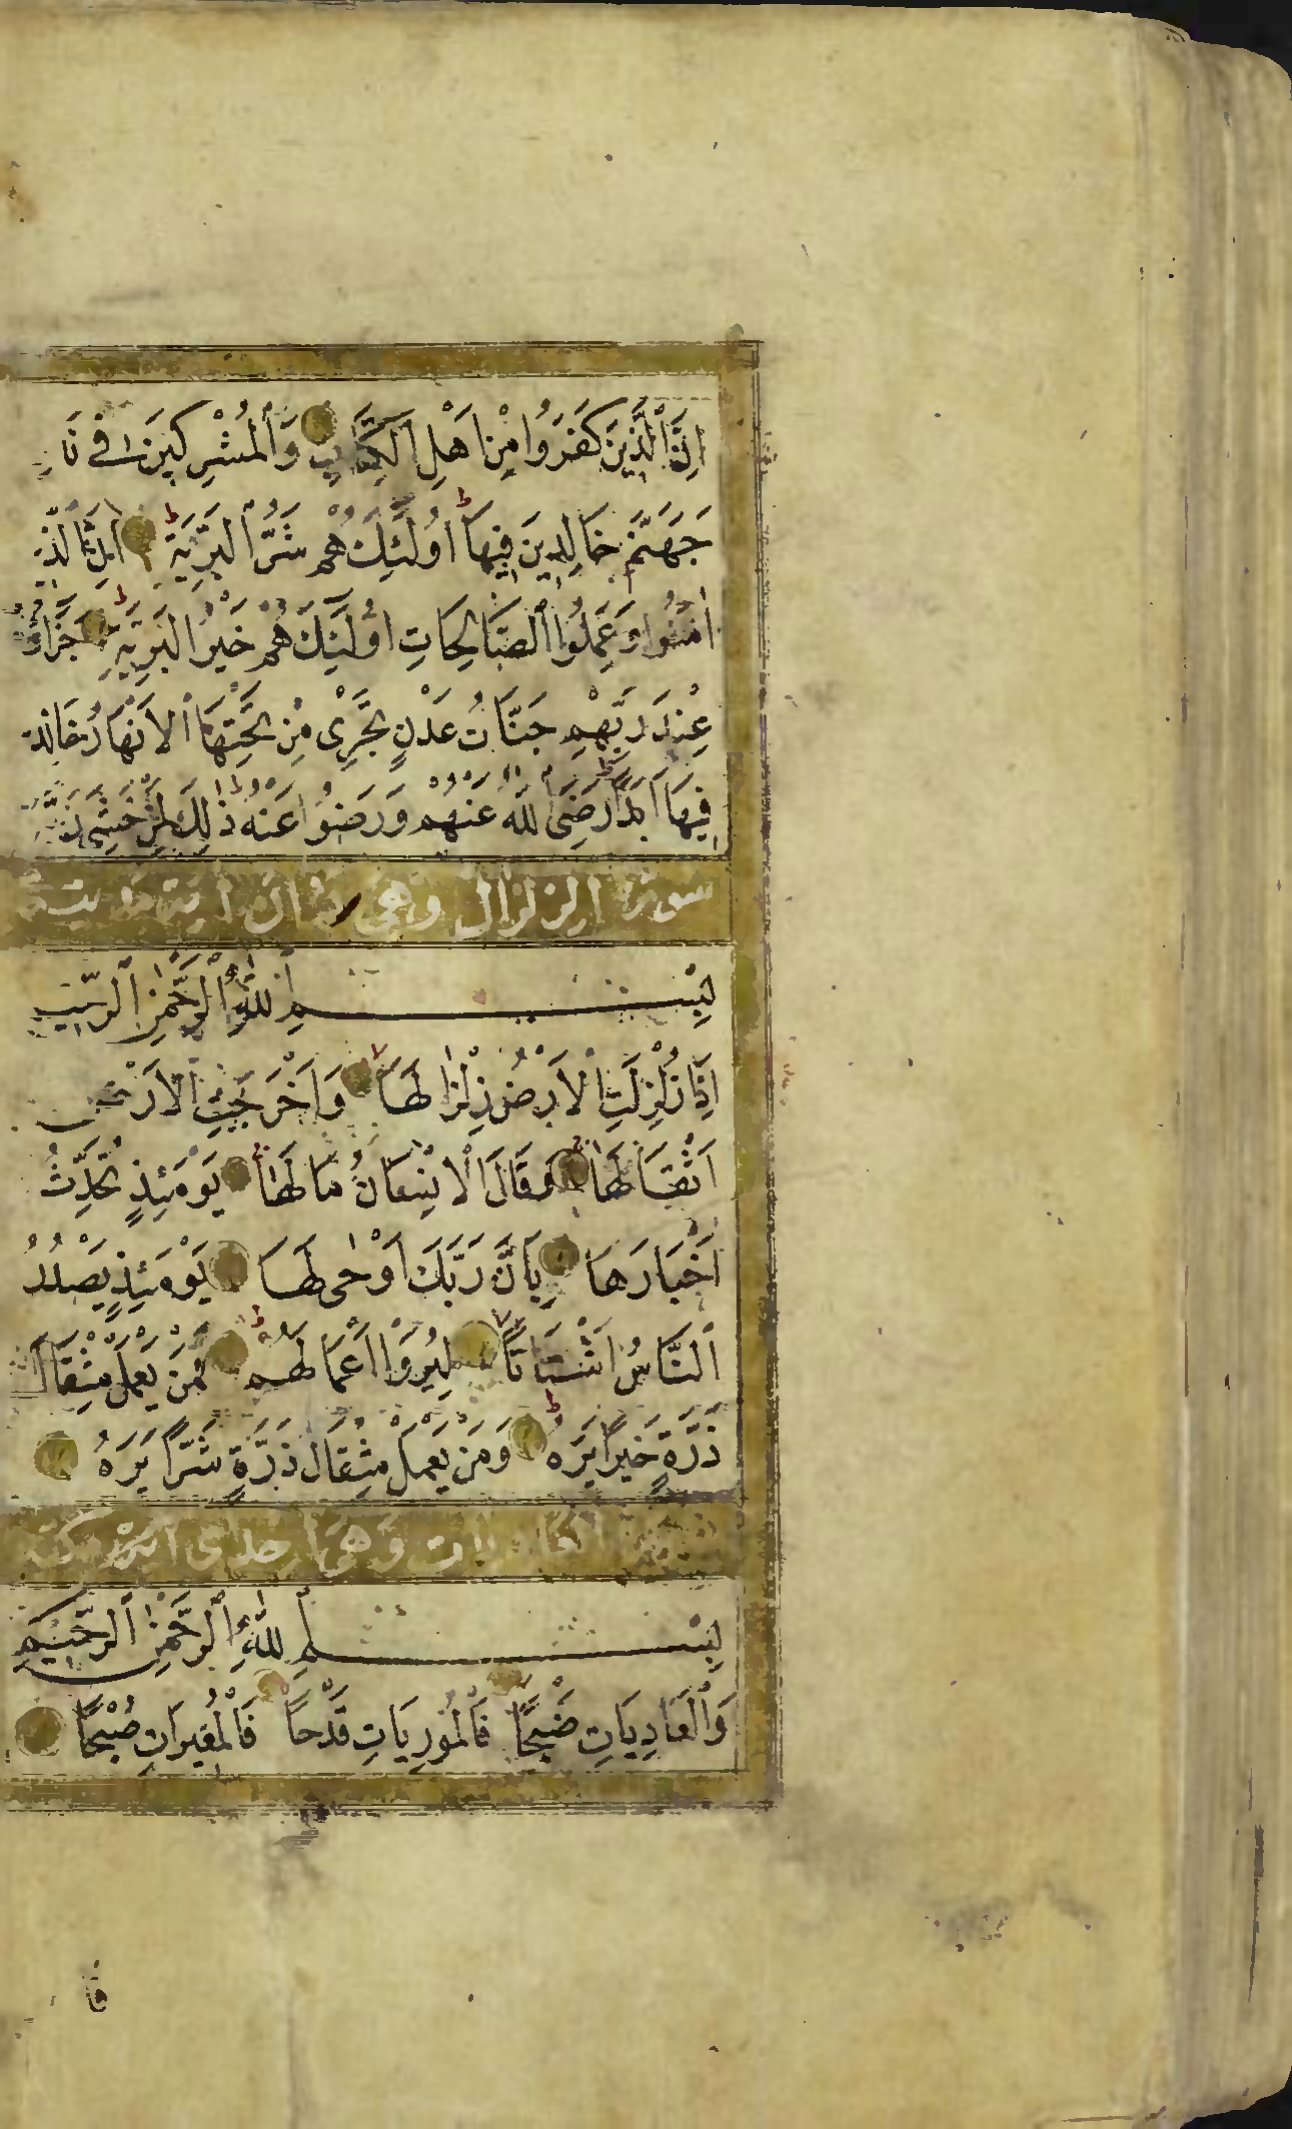 اِنَّ الَّذِينَ كَفَرُوا مِنْ اَهْلِ الْكِتَابِ وَالْمُشْرِكِينَ فِي نَارِ
جَهَنَّمَ خَالِدِينَ فِيهَا اُولَئِكَ هُمْ شَرُّ الْبَرِيَّةِ اِنَّ الَّذِينَ
اٰمَنُوا وَعَمِلُوا الصَّالِحَاتِ اُولَئِكَ هُمْ خَيْرُ الْبَرِيَّةِ جَزَاؤُهُمْ
عِنْدَ رَبِّهِمْ جَنَّاتُ عَدْنٍ تَجْرِي مِنْ تَحْتِهَا الْاَنْهَارُ خَالِدِينَ
فِيهَا اَبَدًا رَضِيَ اللّٰهُ عَنْهُمْ وَرَضُوا عَنْهُ ذٰلِكَ لِمَنْ خَشِيَ رَبَّهُ
سورة الزلزال وهي ثمان اية مدنية
بِسْمِ اللّٰهِ الرَّحْمٰنِ الرَّحِيمِ
اِذَا زُلْزِلَتِ الْاَرْضُ زِلْزَالَهَا وَاَخْرَجَتِ الْاَرْضُ
اَثْقَالَهَا وَقَالَ الْاِنْسَانُ مَا لَهَا يَوْمَئِذٍ تُحَدِّثُ
اَخْبَارَهَا بِاَنَّ رَبَّكَ اَوْحٰى لَهَا يَوْمَئِذٍ يَصْدُرُ
النَّاسُ اَشْتَاتًا لِيُرَوْا اَعْمَالَهُمْ فَمَنْ يَعْمَلْ مِثْقَالَ
ذَرَّةٍ خَيْرًا يَرَهُ وَمَنْ يَعْمَلْ مِثْقَالَ ذَرَّةٍ شَرًّا يَرَهُ
العاديات وهي احدى
بِسْمِ اللّٰهِ الرَّحْمٰنِ الرَّحِيمِ
وَالْعَادِيَاتِ ضَبْحًا فَالْمُورِيَاتِ قَدْحًا فَالْمُغِيرَاتِ صُبْحًا
فا